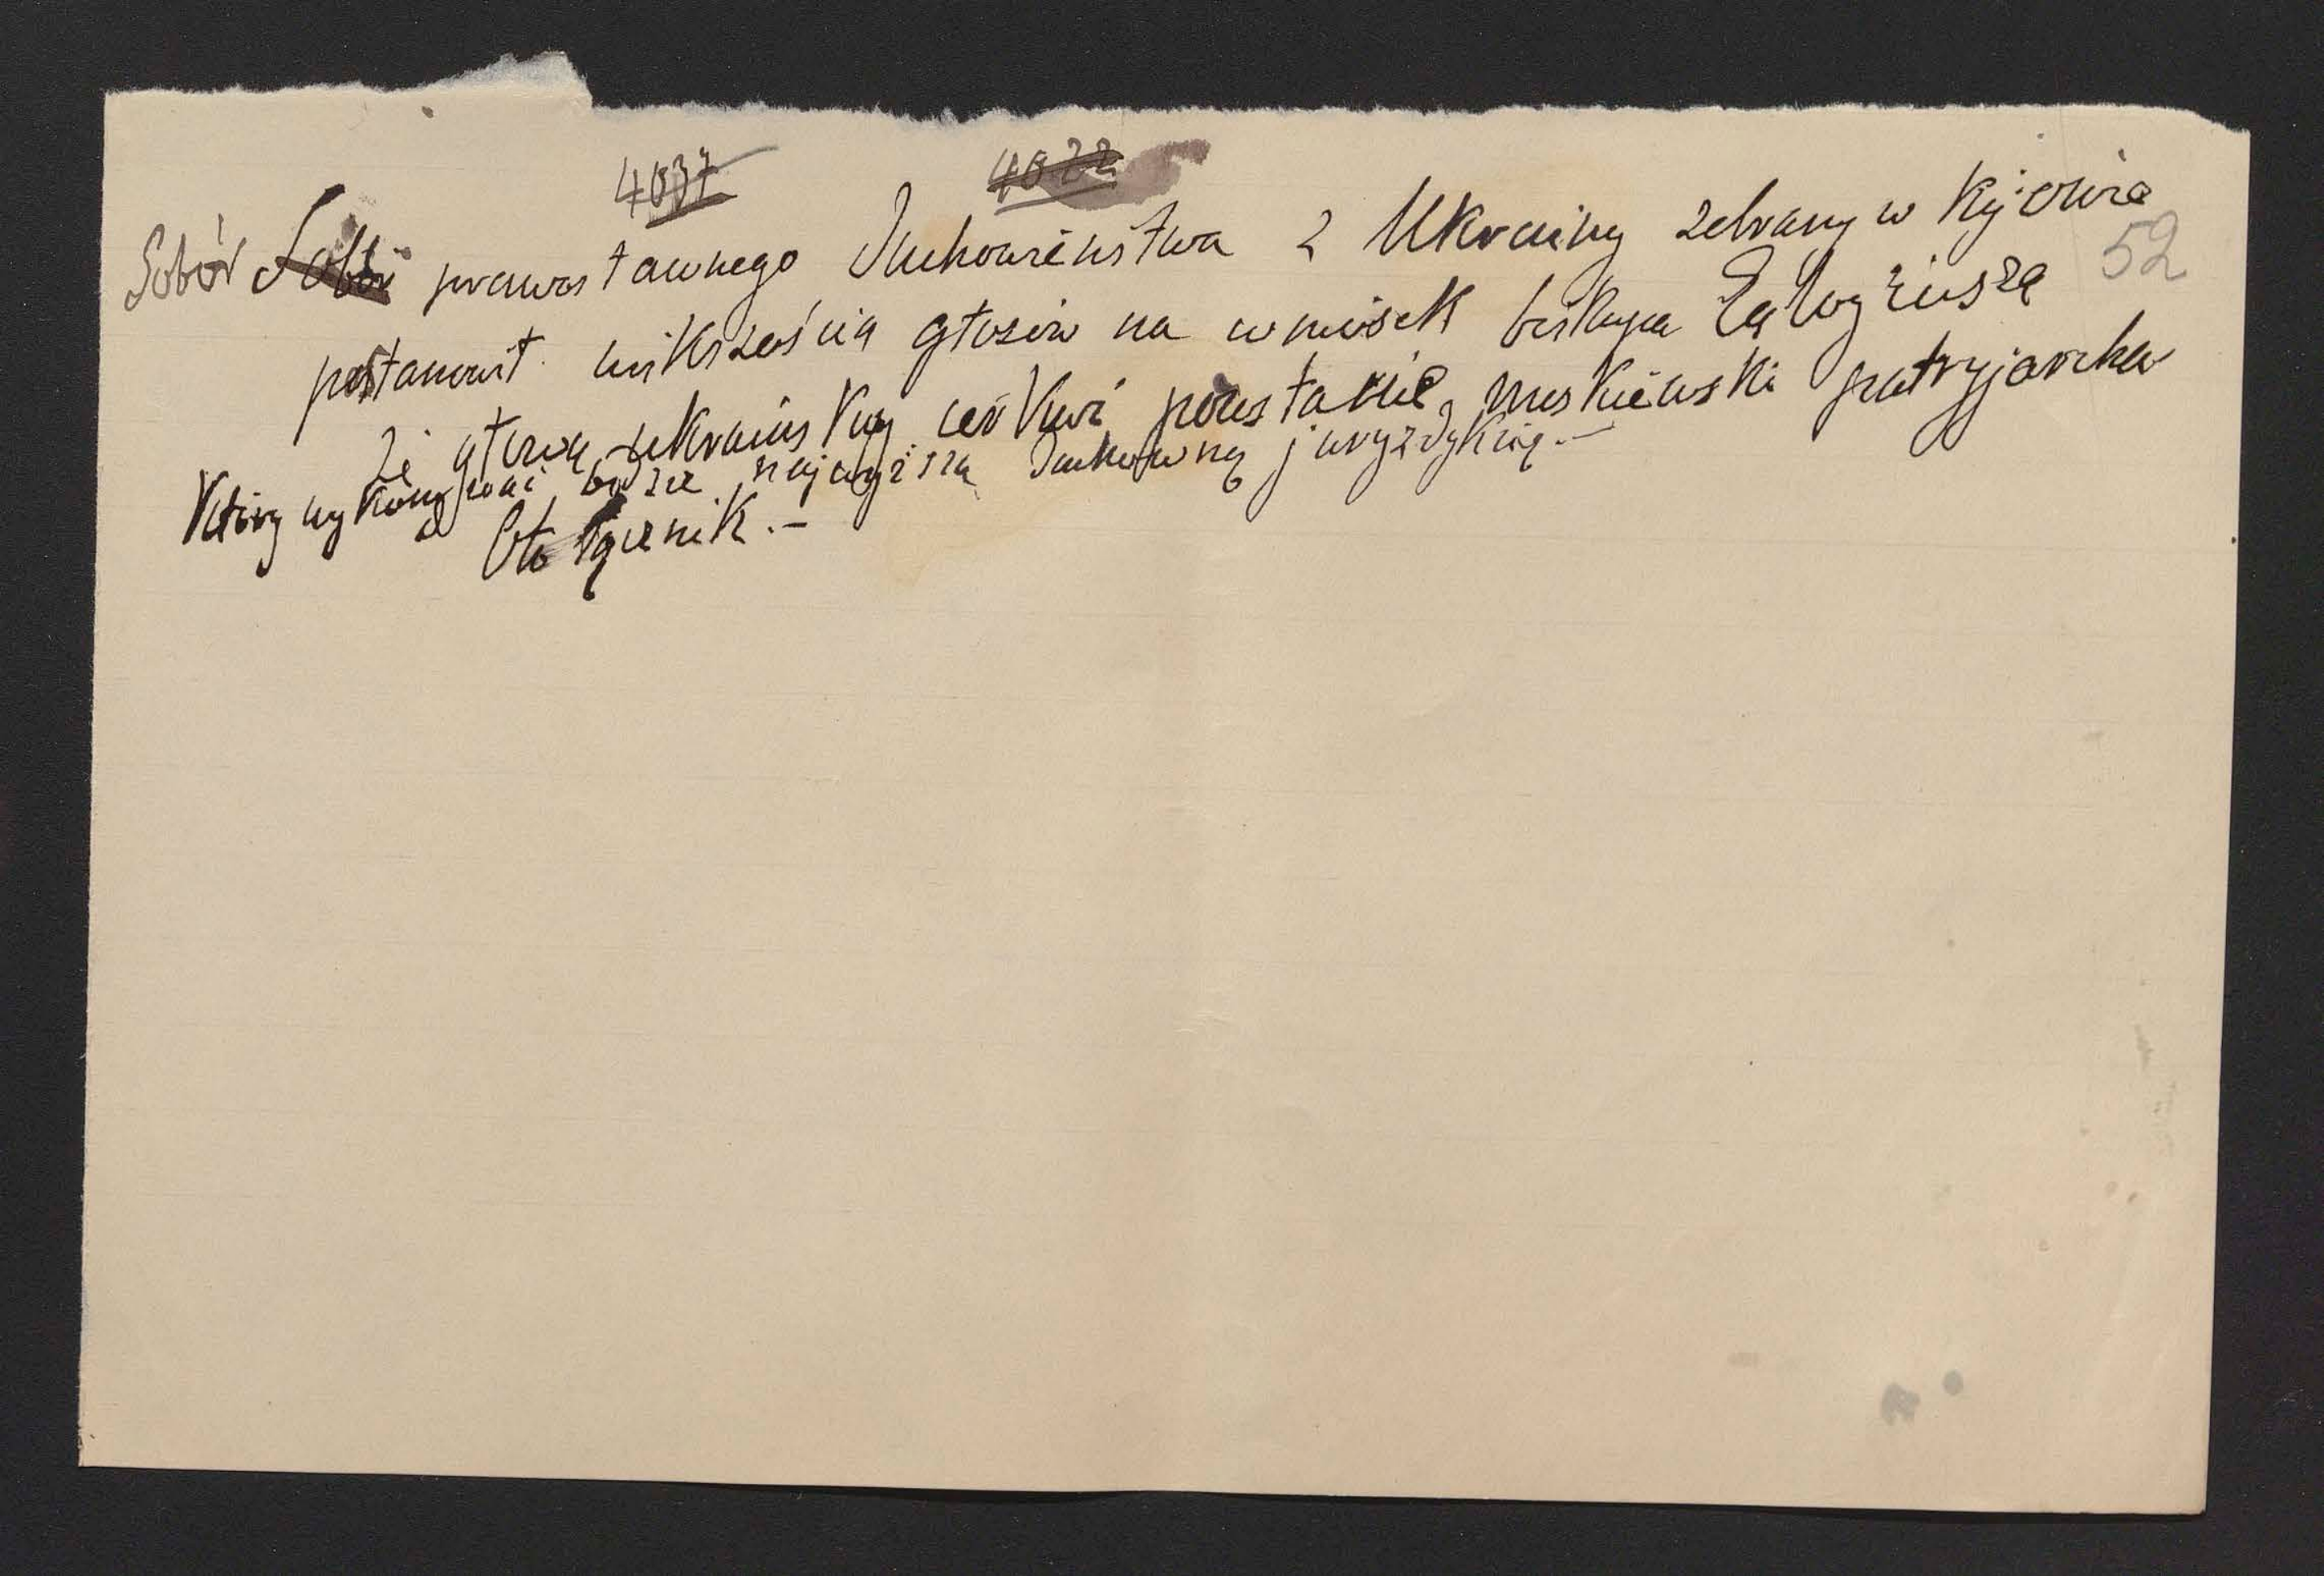 4037 4022
Sobór Sobór prawosławnego Duchowieństwa z Ukrainy zebrany w Kijowie
52
postanowił większością głosów na wniosek biskupa
że głową ukraińskiej cerkwi pozostanie moskiewski patryjarcha
który wykonywać będzie najwyższą duchowną juryzdykcię.—